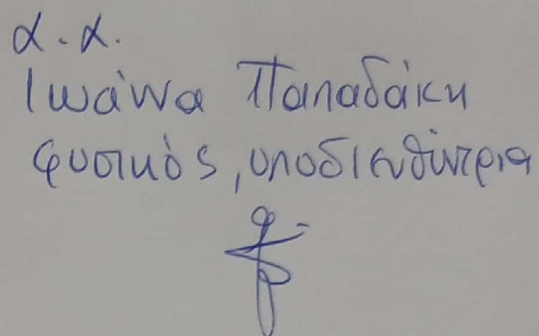 α.α.
Ιωάννα Παπαδάκη
φυσικός, υποδιευθύντρια